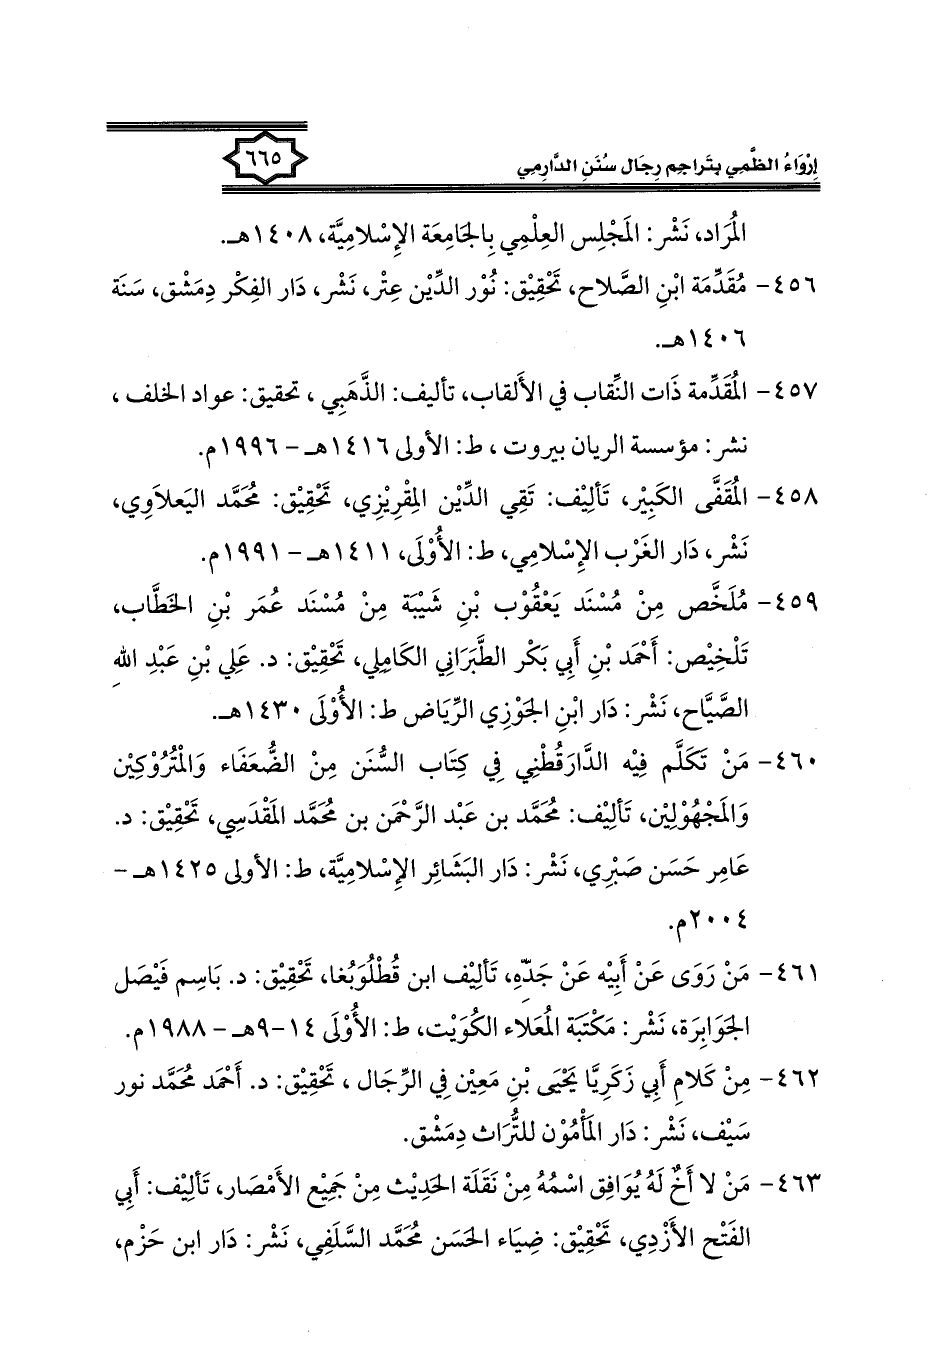 إِرْوَاءُ الظَّمِي بِتَراجِم رِجَال سُنَنِ الدَّارِمِي
٦٦٥
المُرَاد، نَشْر: المَجْلِس العِلْمِي بِالجَامِعَة الإِسْلامِيَّة، ١٤٠٨هـ.
٤٥٦- مُقَدِّمَة ابْنِ الصَّلاح، تَحْقِيْق: نُوْر الدِّيْن عِتْر، نَشْر، دَار الفِكْر دِمَشْق، سَنَة
١٤٠٦هـ.
٤٥٧- المُقَدِّمة ذَات النِّقاب في الأَلقاب، تأليف: الذَّهَبِي ، تحقيق: عواد الخلف ،
نشر: مؤسسة الريان بيروت ، ط: الأولى ١٤١٦هـ - ١٩٩٦م.
٤٥٨- المُقَفَّى الكَبِيْر، تَأْلِيْف: تَقِي الدِّيْن المِقْرِيْزِي، تَحْقِيْق: مُحَمَّد اليَعلاَوِي،
نَشْر، دَار الغَرْب الإِسْلامِي، ط: الأُوْلَى، ١٤١١هـ - ١٩٩١م.
٤٥٩- مُلَخَّص مِنْ مُسْنَد يَعْقُوْب بْنِ شَيْبَة مِنْ مُسْنَد عُمَر بْنِ الخَطَّاب،
تَلْخِيْص: أَحْمَد بْنِ أَبِي بَكْر الطَّبَرَانِي الكَامِلِي، تَحْقِيْق: د. عَلِي بْنِ عَبْدِ اللهِ
الصَّيَّاح، نَشْر: دَار ابْنِ الجَوْزِي الرِّيَاض ط: الأُوْلَى ١٤٣٠هـ.
٤٦٠- مَنْ تَكَلَّم فِيْه الدَّارَقُطْنِي فِي كِتَاب السُّنَن مِنْ الضُّعَفَاء وَالمَتْرُوْكِيْن
وَالمَجْهُوْلِيْن، تَأْلِيْف: مُحَمَّد بن عَبْد الرَّحْمَن بن مُحَمَّد المَقْدَسِي، تَحْقِيْق: د.
عَامِر حَسَن صَبْرِي، نَشْر: دَار البَشَائِر الإِسْلامِيَّة، ط: الأولى ١٤٢٥هـ -
٢٠٠٤م.
٤٦١- مَنْ رَوَى عَنْ أَبِيْه عَنْ جَدِّهِ، تَأْلِيْف ابن قُطْلُوَبُغا، تَحْقِيْق: د. بَاسِم فَيْصَل
الجَوَابِرَة، نَشْر: مَكْتَبَة المُعَلاء الكُوَيْت، ط: الأُوْلَى ١٤-٩هـ - ١٩٨٨م.
٤٦٢- مِنْ كَلامِ أَبِي زَكَرِيَّا يَحْيَى بْنِ مَعِيْن فِي الرِّجَال ، تَحْقِيْق: د. أَحْمَد مُحَمَّد نور
سَيْف، نَشْر: دَار المَأْمُوْن للتُّرَاث دِمَشْق.
٤٦٣- مَنْ لا أَخٌ لَهُ يُوَافِق اسْمُهُ مِنْ نَقَلَة الحَدِيْث مِنْ جَمِيْع الأَمْصَار، تَأْلِيْف: أَبِي
الفَتْح الأَزْدِي، تَحْقِيْق: ضِيَاء الحَسَن مُحَمَّد السَّلَفِي، نَشْر: دَار ابن حَزْم،